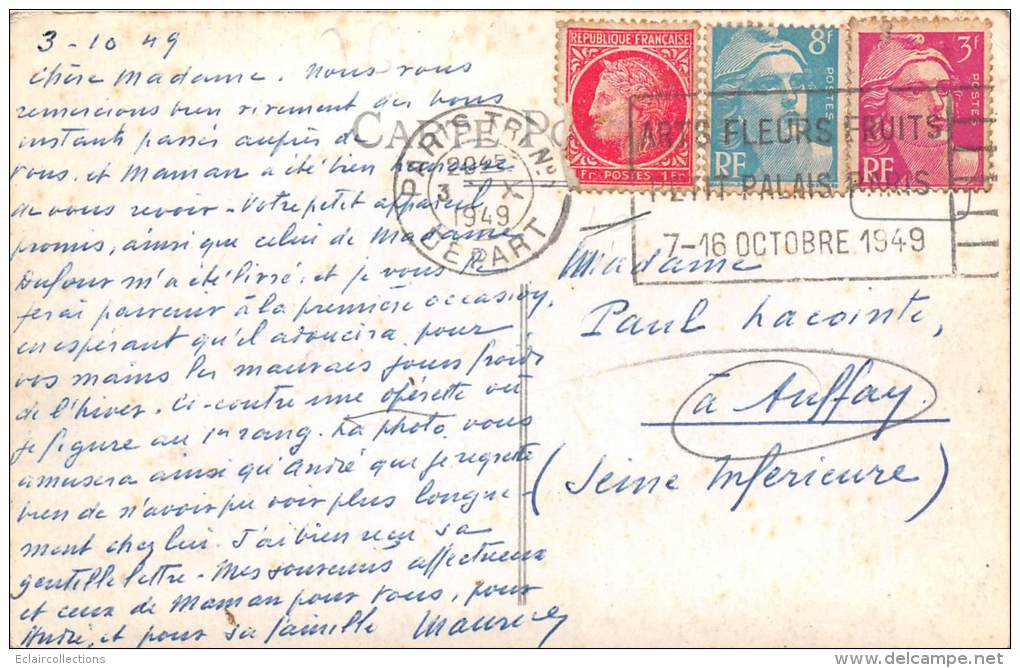 3-10 49
Chère Madame. Nous vous
remercions bien vivement des bons
instants passés auprès de
vous. et Maman a été bien heureuse
de vous revoir. Votre petit appareil
promis, ainsi que celui de Madame
Dufour m'a été livré. et je vous le
ferai parvenir à la première occasion,
en espérant qu'il adoucira pour
vos mains les mauvais jours froids
de l'hiver. Ci-contre une opérette où
je figure au 1er rang. La photo vous
amusera ainsi qu'André que je regrette
bien de n'avoir pu voir plus longue-
ment chez lui. J'ai bien reçu sa
gentille lettre. Mes souvenirs affectueux
et ceux de Maman pour vous, pour
André, et pour sa famille Maurice
CARTE PO
PARIS TRI No 1
20H45
3 X
1949
DEPART
REPUBLIQUE FRANÇAISE
1 Fr. POSTES 1 Fr.
8F
POSTES
RF
3F
POSTES
RF
ARTS FLEURS FRUITS
PETIT PALAIS PARIS
7-16 OCTOBRE 1949
Madame
Paul Lacointe,
à Auffay.
(Seine Inférieure)
Eclaircollections
www.delcampe.net